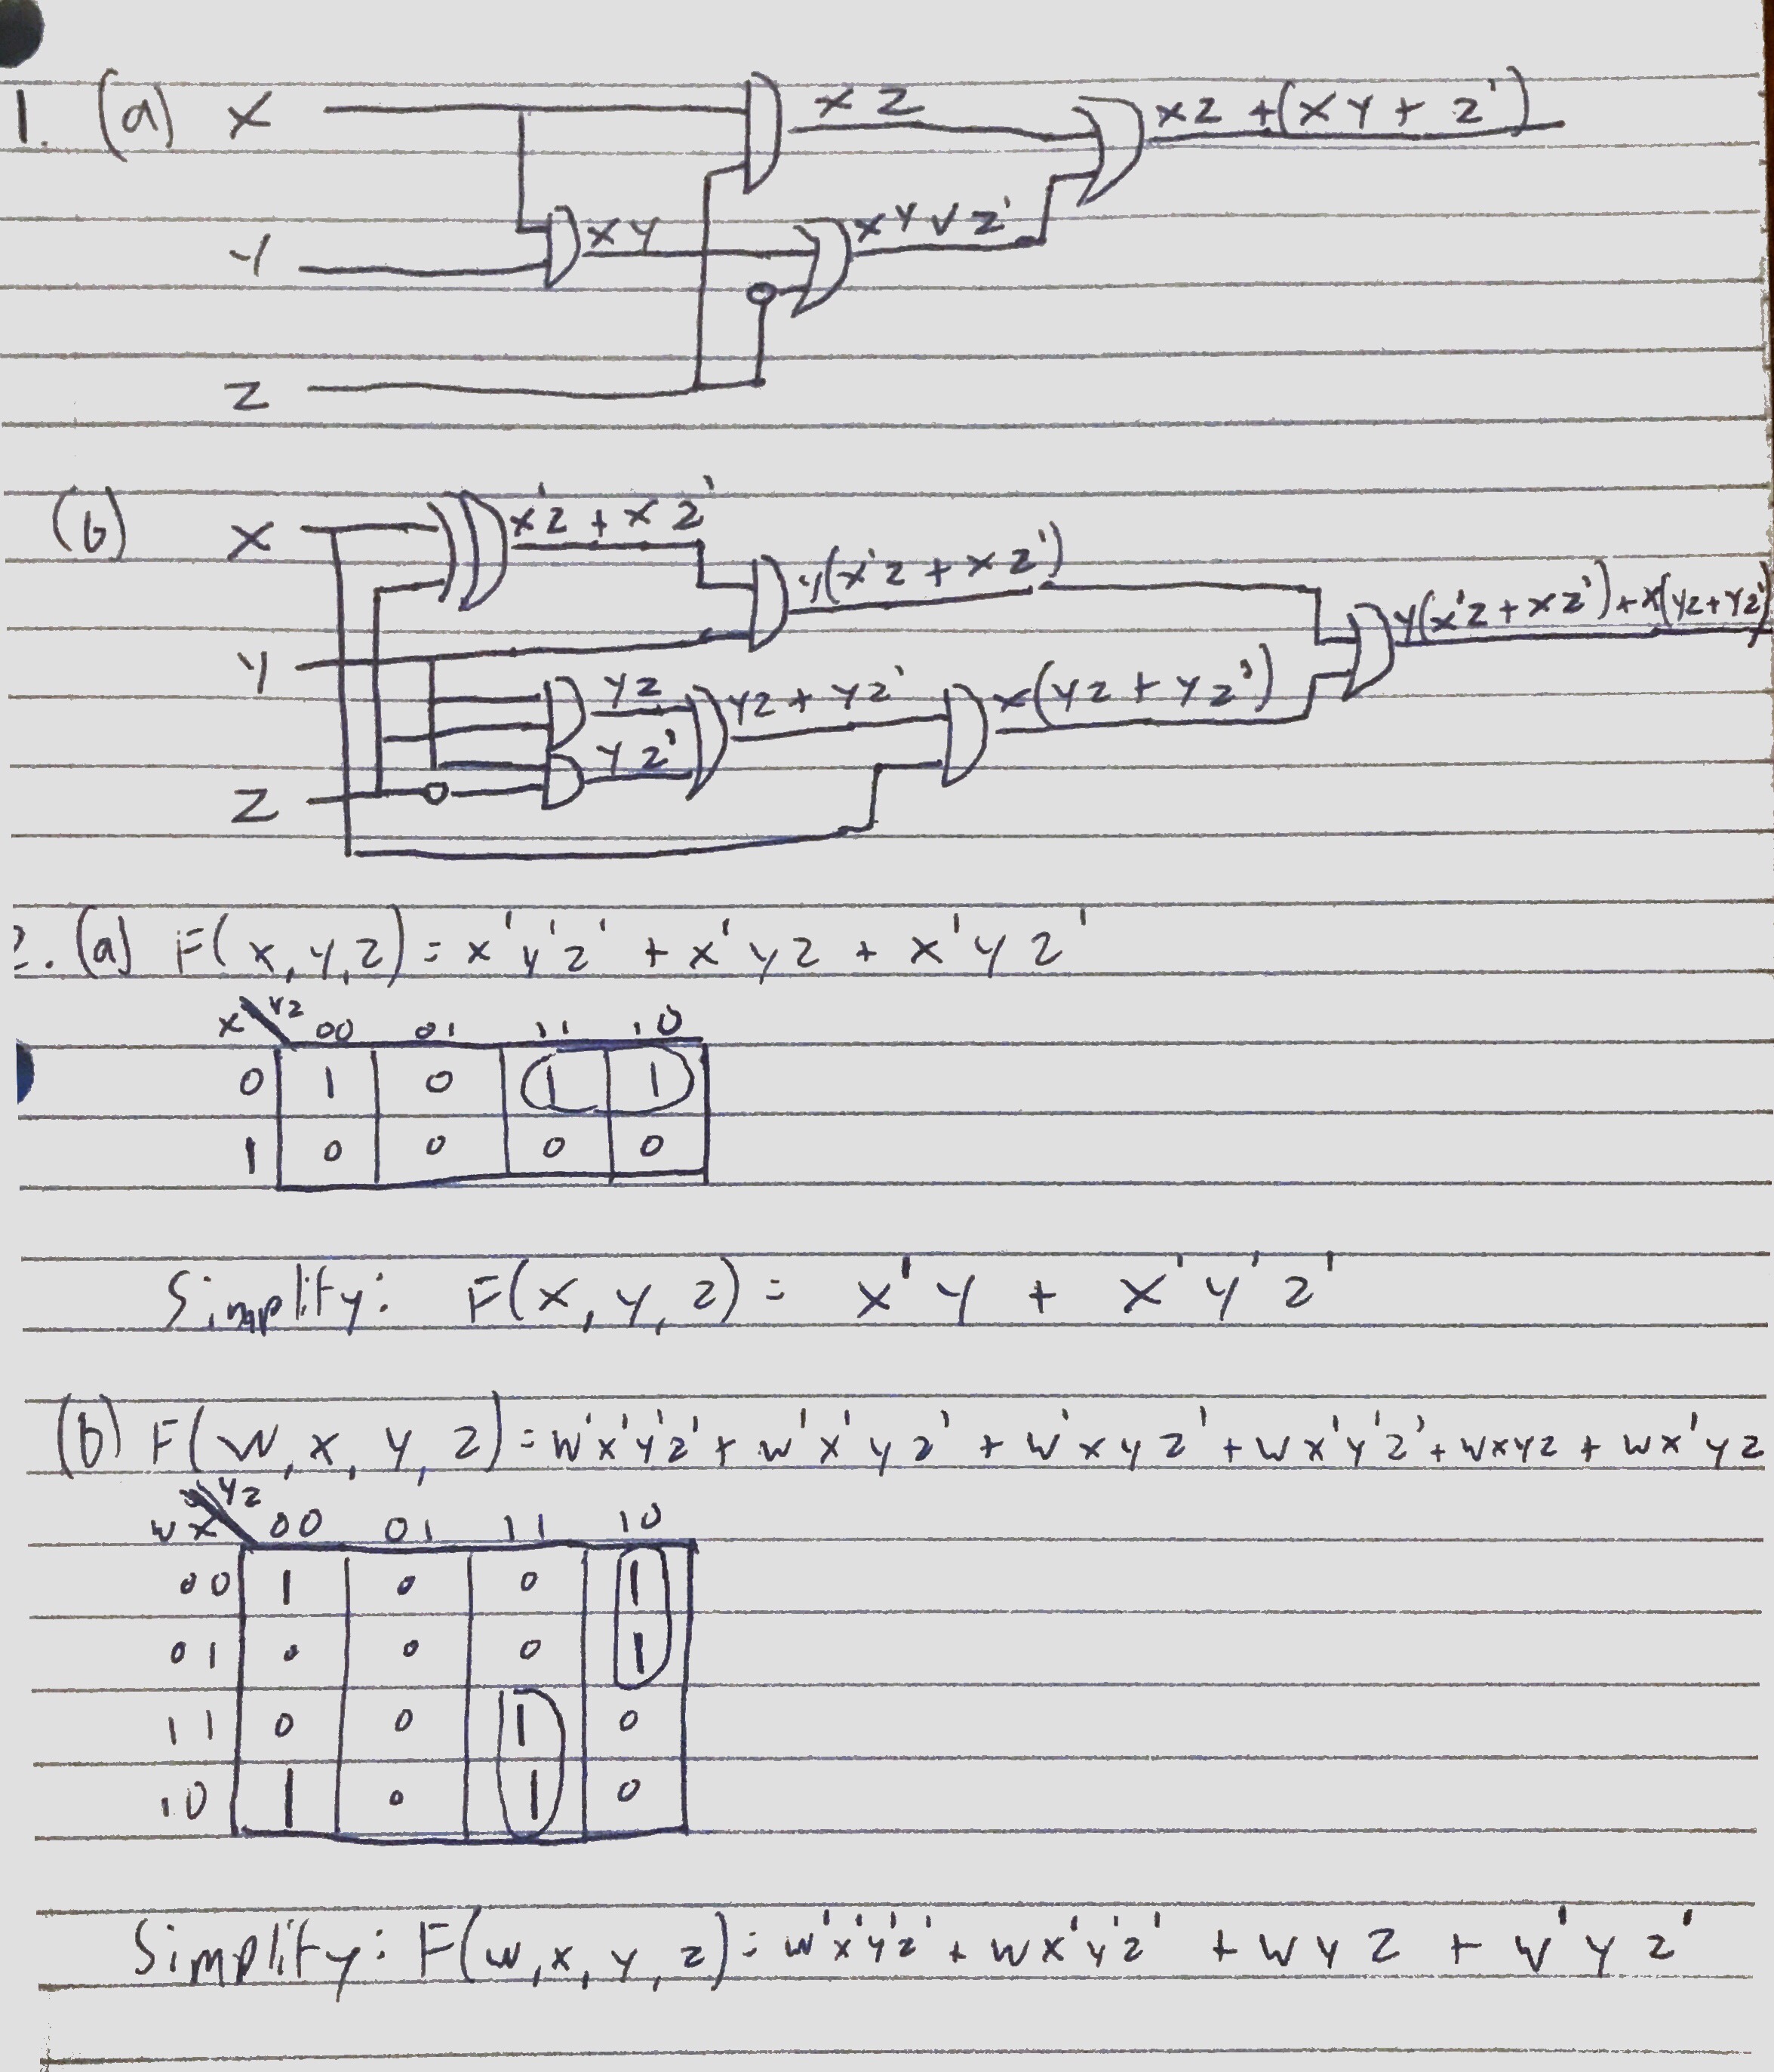 1. (a) X
XZ
XZ + (XY + Z')
Y
XY
XY ∨ Z'
Z
(b) X
X'Z + XZ'
Y(X'Z + XZ')
Y(X'Z + XZ') + X(YZ + YZ')
Y
YZ
YZ + YZ'
X(YZ + YZ')
YZ'
Z
2. (a) F(x, y, z) = x'y'z' + x'yz + x'yz'
x yz 00 01 11 10
0 1 0 1 1
1 0 0 0 0
Simplify: F(x, y, z) = x'y + x'y'z'
(b) F(w, x, y, z) = w'x'y'z' + w'x'yz' + w'xyz' + wx'y'z' + wxyz + wx'yz
wx yz 00 01 11 10
00 1 0 0 1
01 0 0 0 1
11 0 0 1 0
10 1 0 1 0
Simplify: F(w, x, y, z) = w'x'y'z' + wx'y'z' + wyz + w'yz'